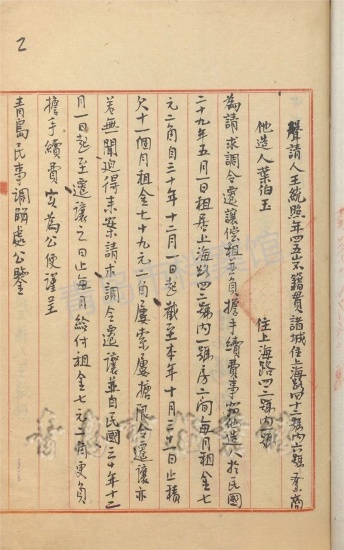 2
聲請人王統照年四五歲籍貫諸城住上海路四十二號內六號業商
他造人葉伯玉 住上海路四二號內一號
為請求調令遷讓償租並負擔手續費事竊他造人於民國
二十九年五月一日租居上海路四二號內一號房二間每月租金七
元二角自三十年十二月一日起截至本年十月三十一日止積
欠十一個月租金七十九元二角屢索屢推限令遷讓亦
若無聞迫得來案請求調令遷讓並自民國三十年十二
月一日起至遷讓之日止每月給付租金七元二角更負
擔手續費實為公便謹呈
青島民事調解處公鑒